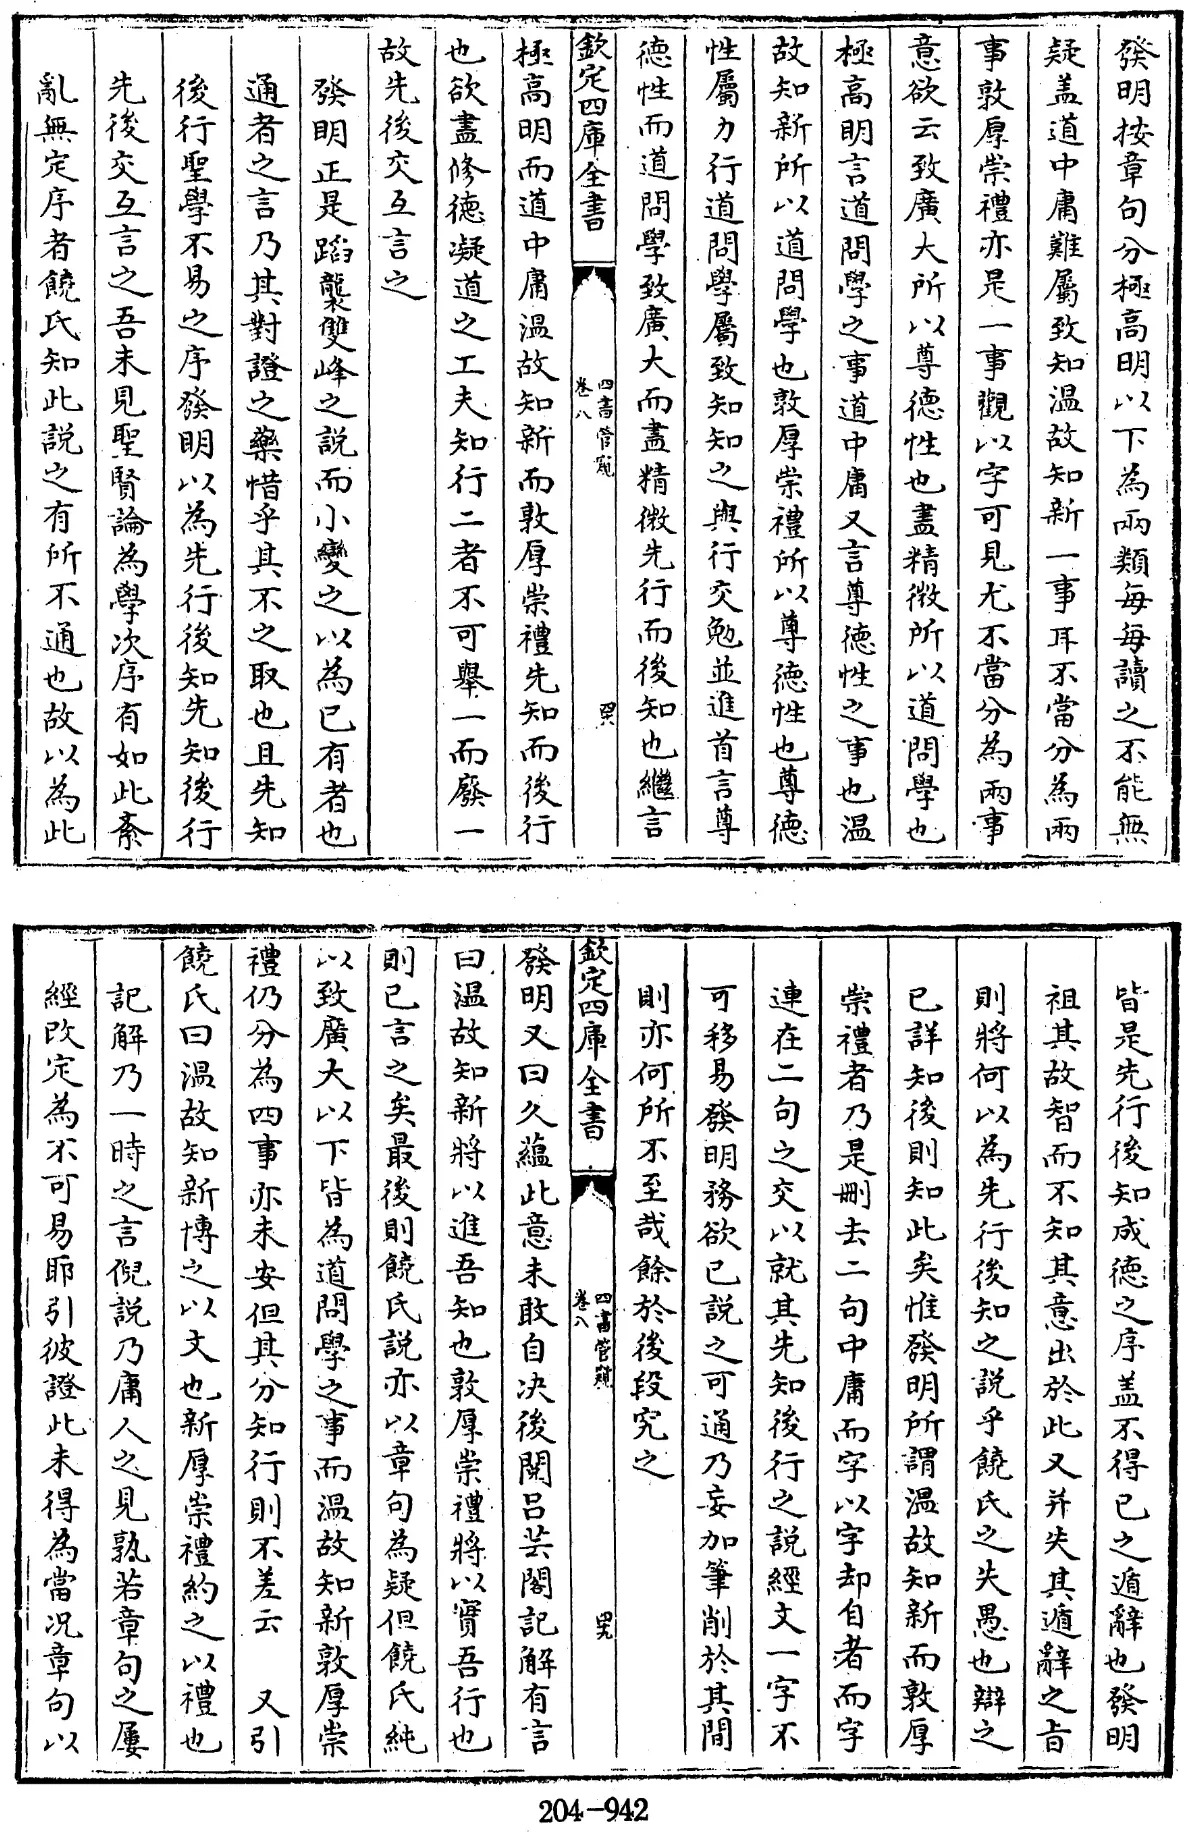 發明按章句分極高明以下為兩類每每讀之不能無
疑盖道中庸難屬致知温故知新一事耳不當分為兩
事敦厚崇禮亦是一事觀以字可見尤不當分為兩事
意欲云致廣大所以尊德性也盡精微所以道問學也
極高明言道問學之事道中庸又言尊德性之事也温
故知新所以道問學也敦厚崇禮所以尊德性也尊德
性屬力行道問學屬致知知之與行交勉並進首言尊
德性而道問學致廣大而盡精微先行而後知也繼言
欽定四庫全書
四書管窺
卷八
極高明而道中庸温故知新而敦厚崇禮先知而後行
也欲盡修德凝道之工夫知行二者不可舉一而廢一
故先後交互言之
發明正是蹈襲雙峰之說而小變之以為已有者也
通者之言乃其對證之藥惜乎其不之取也且先知
後行聖學不易之序發明以為先行後知先知後行
先後交互言之吾未見聖賢論為學次序有如此紊
亂無定序者饒氏知此説之有所不通也故以為此
皆是先行後知成德之序盖不得已之遁辭也發明
祖其故智而不知其意出於此又并失其遁辭之旨
則將何以為先行後知之説乎饒氏之失愚也辯之
已詳知後則知此矣惟發明所謂温故知新而敦厚
崇禮者乃是刪去二句中庸而字以字却自者而字
連在二句之交以就其先知後行之説經文一字不
可移易發明務欲已說之可通乃妄加筆削於其間
則亦何所不至哉餘於後段究之
欽定四庫全書
四書管窺
卷八
發明又曰久蘊此意未敢自决後開吕芸閣記解有言
曰温故知新將以進吾知也敦厚崇禮將以實吾行也
則已言之矣最後則饒氏說亦以章句為疑但饒氏純
以致廣大以下皆為道問學之事而温故知新敦厚崇
禮仍分為四事亦未安但其分知行則不差云 又引
饒氏曰温故知新博之以文也新厚崇禮約之以禮也
記解乃一時之言倪説乃庸人之見孰若章句之屢
經改定為不可易耶引彼證此未得為當况章句以
204-942